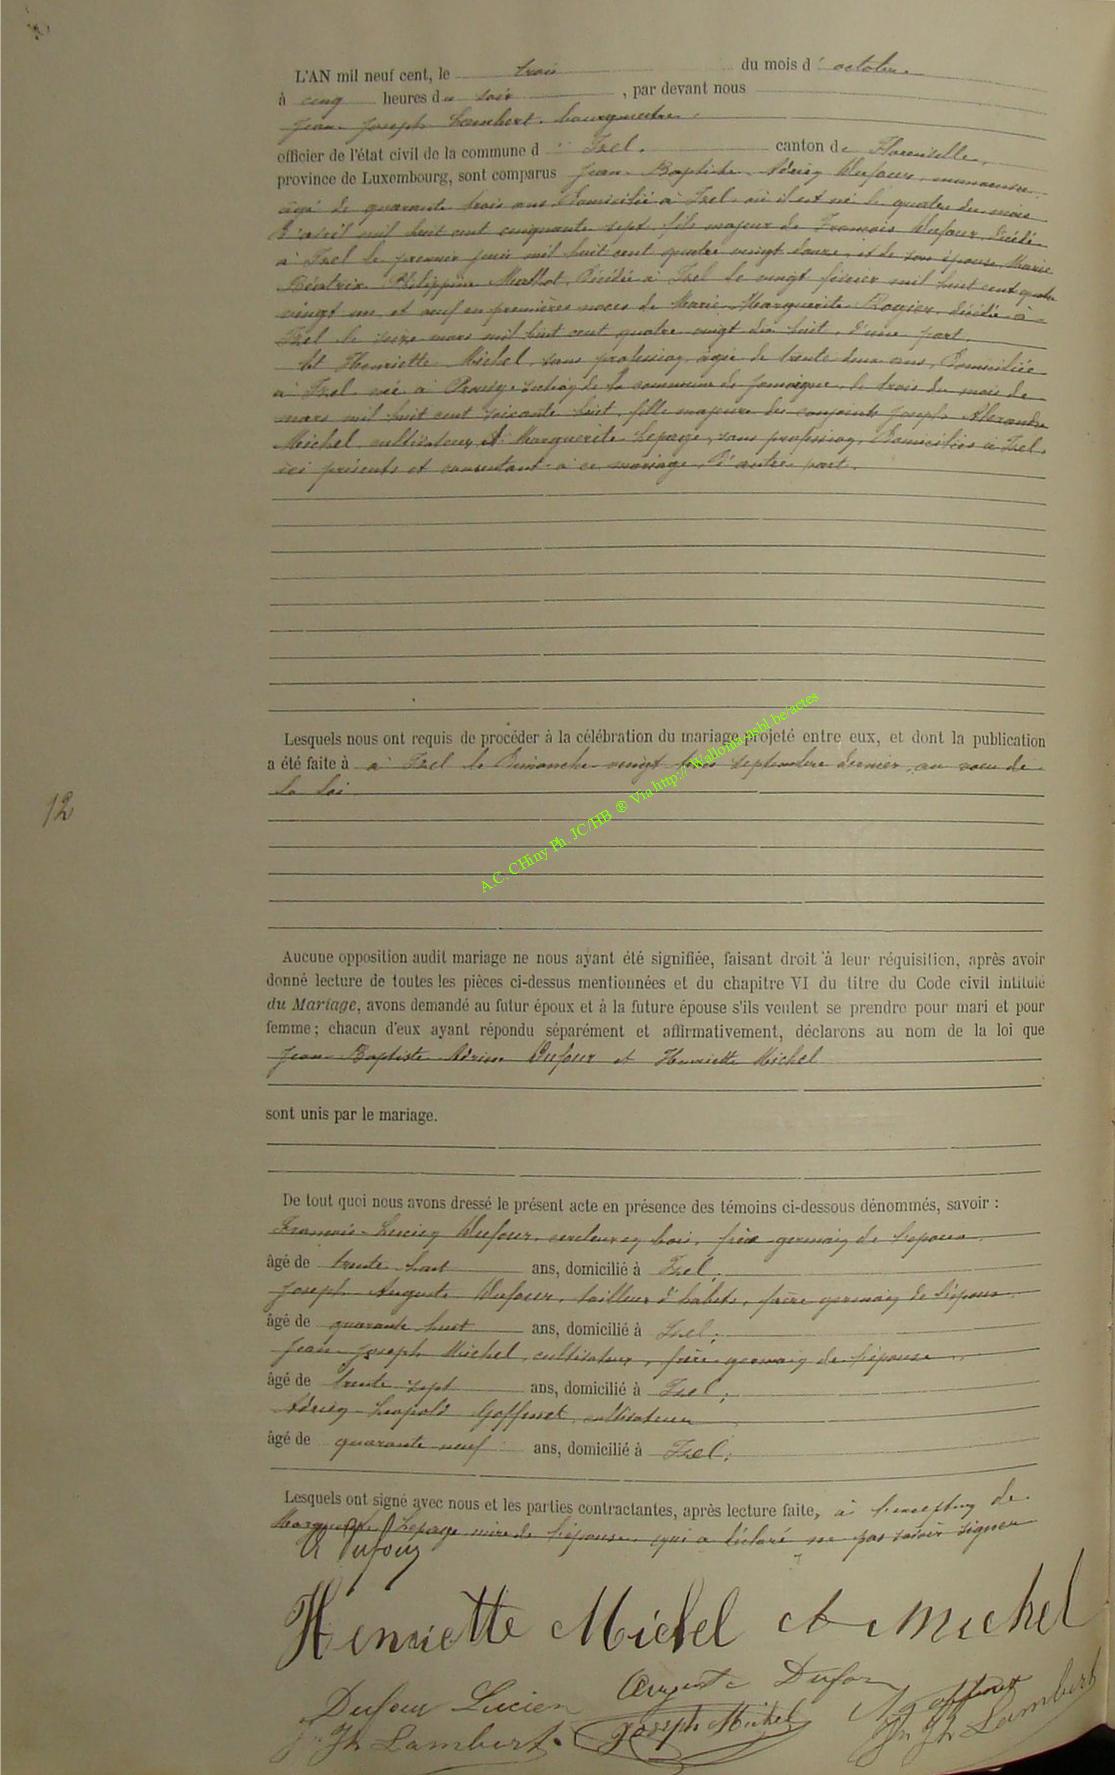 L'AN mil neuf cent, le trois du mois d'octobre
à cinq heures du soir, par devant nous
Jean Joseph Lambert bourgmestre
officier de l'état civil de la commune d'Izel. canton de Florenville,
province de Luxembourg, sont comparus Jean Baptiste Adrien Dufour, manoeuvre
âgé de quarante trois ans domicilié à Izel où il est né le quatre du mois
d'avril mil huit cent cinquante sept, fils majeur de François Dufour, décédé
à Izel le premier juin mil huit cent quatre vingt douze, et de son épouse Marie
Béatrix Philippine Mathot, décédée à Izel le vingt février mil huit cent quatre
vingt un, et veuf en premières noces de Marie Marguerite Rogier, décédée à
Izel le seize mars mil huit cent quatre vingt dix huit, d'une part.
Et Henriette Michel, sans profession, âgée de trente deux ans, domiciliée
à Izel née à Prouvy section de la commune de Jamoigne, le trois du mois de
mars mil huit cent soixante huit, fille majeure des conjoints Joseph Alexandre
Michel cultivateur, et Marguerite Lepage, sans profession, domiciliés à Izel,
ici présents et consentant à ce mariage, d'autre part.
Lesquels nous ont requis de procéder à la célébration du mariage projeté entre eux, et dont la publication
a été faite à à Izel le dimanche vingt trois septembre dernier, au voeu de
la loi
12
A.C. CHiny Ph. JC/HB ® Via http://Wallonia-asbl.be/actes
Aucune opposition audit mariage ne nous ayant été signifiée, faisant droit à leur réquisition, après avoir
donné lecture de toutes les pièces ci-dessus mentionnées et du chapitre VI du titre du Code civil intitulé
du Mariage, avons demandé au futur époux et à la future épouse s'ils veulent se prendre pour mari et pour
femme; chacun d'eux ayant répondu séparément et affirmativement, déclarons au nom de la loi que
Jean Baptiste Adrien Dufour et Henriette Michel
sont unis par le mariage.
De tout quoi nous avons dressé le présent acte en présence des témoins ci-dessous dénommés, savoir :
François Lucien Dufour, sculteur en bois, frère germain de l'époux
âgé de trente huit ans, domicilié à Izel;
Joseph Auguste Dufour, tailleur d'habits, frère germain de l'époux
âgé de quarante huit ans, domicilié à Izel;
Jean Joseph Michel, cultivateur, frère germain de l'épouse
âgé de trente sept ans, domicilié à Izel;
Adrien Léopold Goffinet, cultivateur
âgé de quarante neuf ans, domicilié à Izel;
Lesquels ont signé avec nous et les parties contractantes, après lecture faite, à l'exception de
Marguerite Lepage mère de l'épouse qui a déclaré ne pas savoir signer
A Dufour
Henriette Michel A Michel
Dufour Lucien Auguste Dufour
J. Jh Lambert. Joseph Michel Jh Jh Lambert